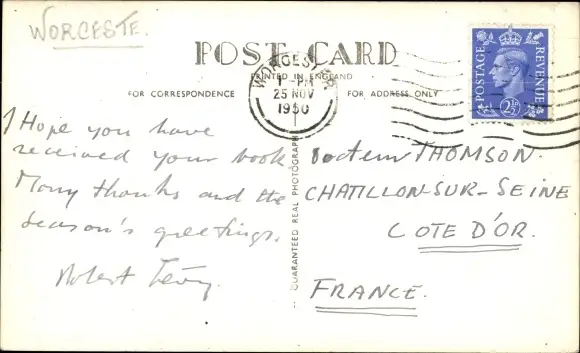 WORCESTE.
POST CARD
PRINTED IN ENGLAND
FOR CORRESPONDENCE
FOR ADDRESS ONLY
WORCESTER
1-PM
25 NOV
1950
POSTAGE
REVENUE
2½D
I Hope you have
received your book
Many thanks and the
Season's greetings.
Robert
GUARANTEED REAL PHOTOGRAPH
Docteur THOMSON.
CHATILLON-SUR-SEINE
COTE D'OR.
FRANCE.